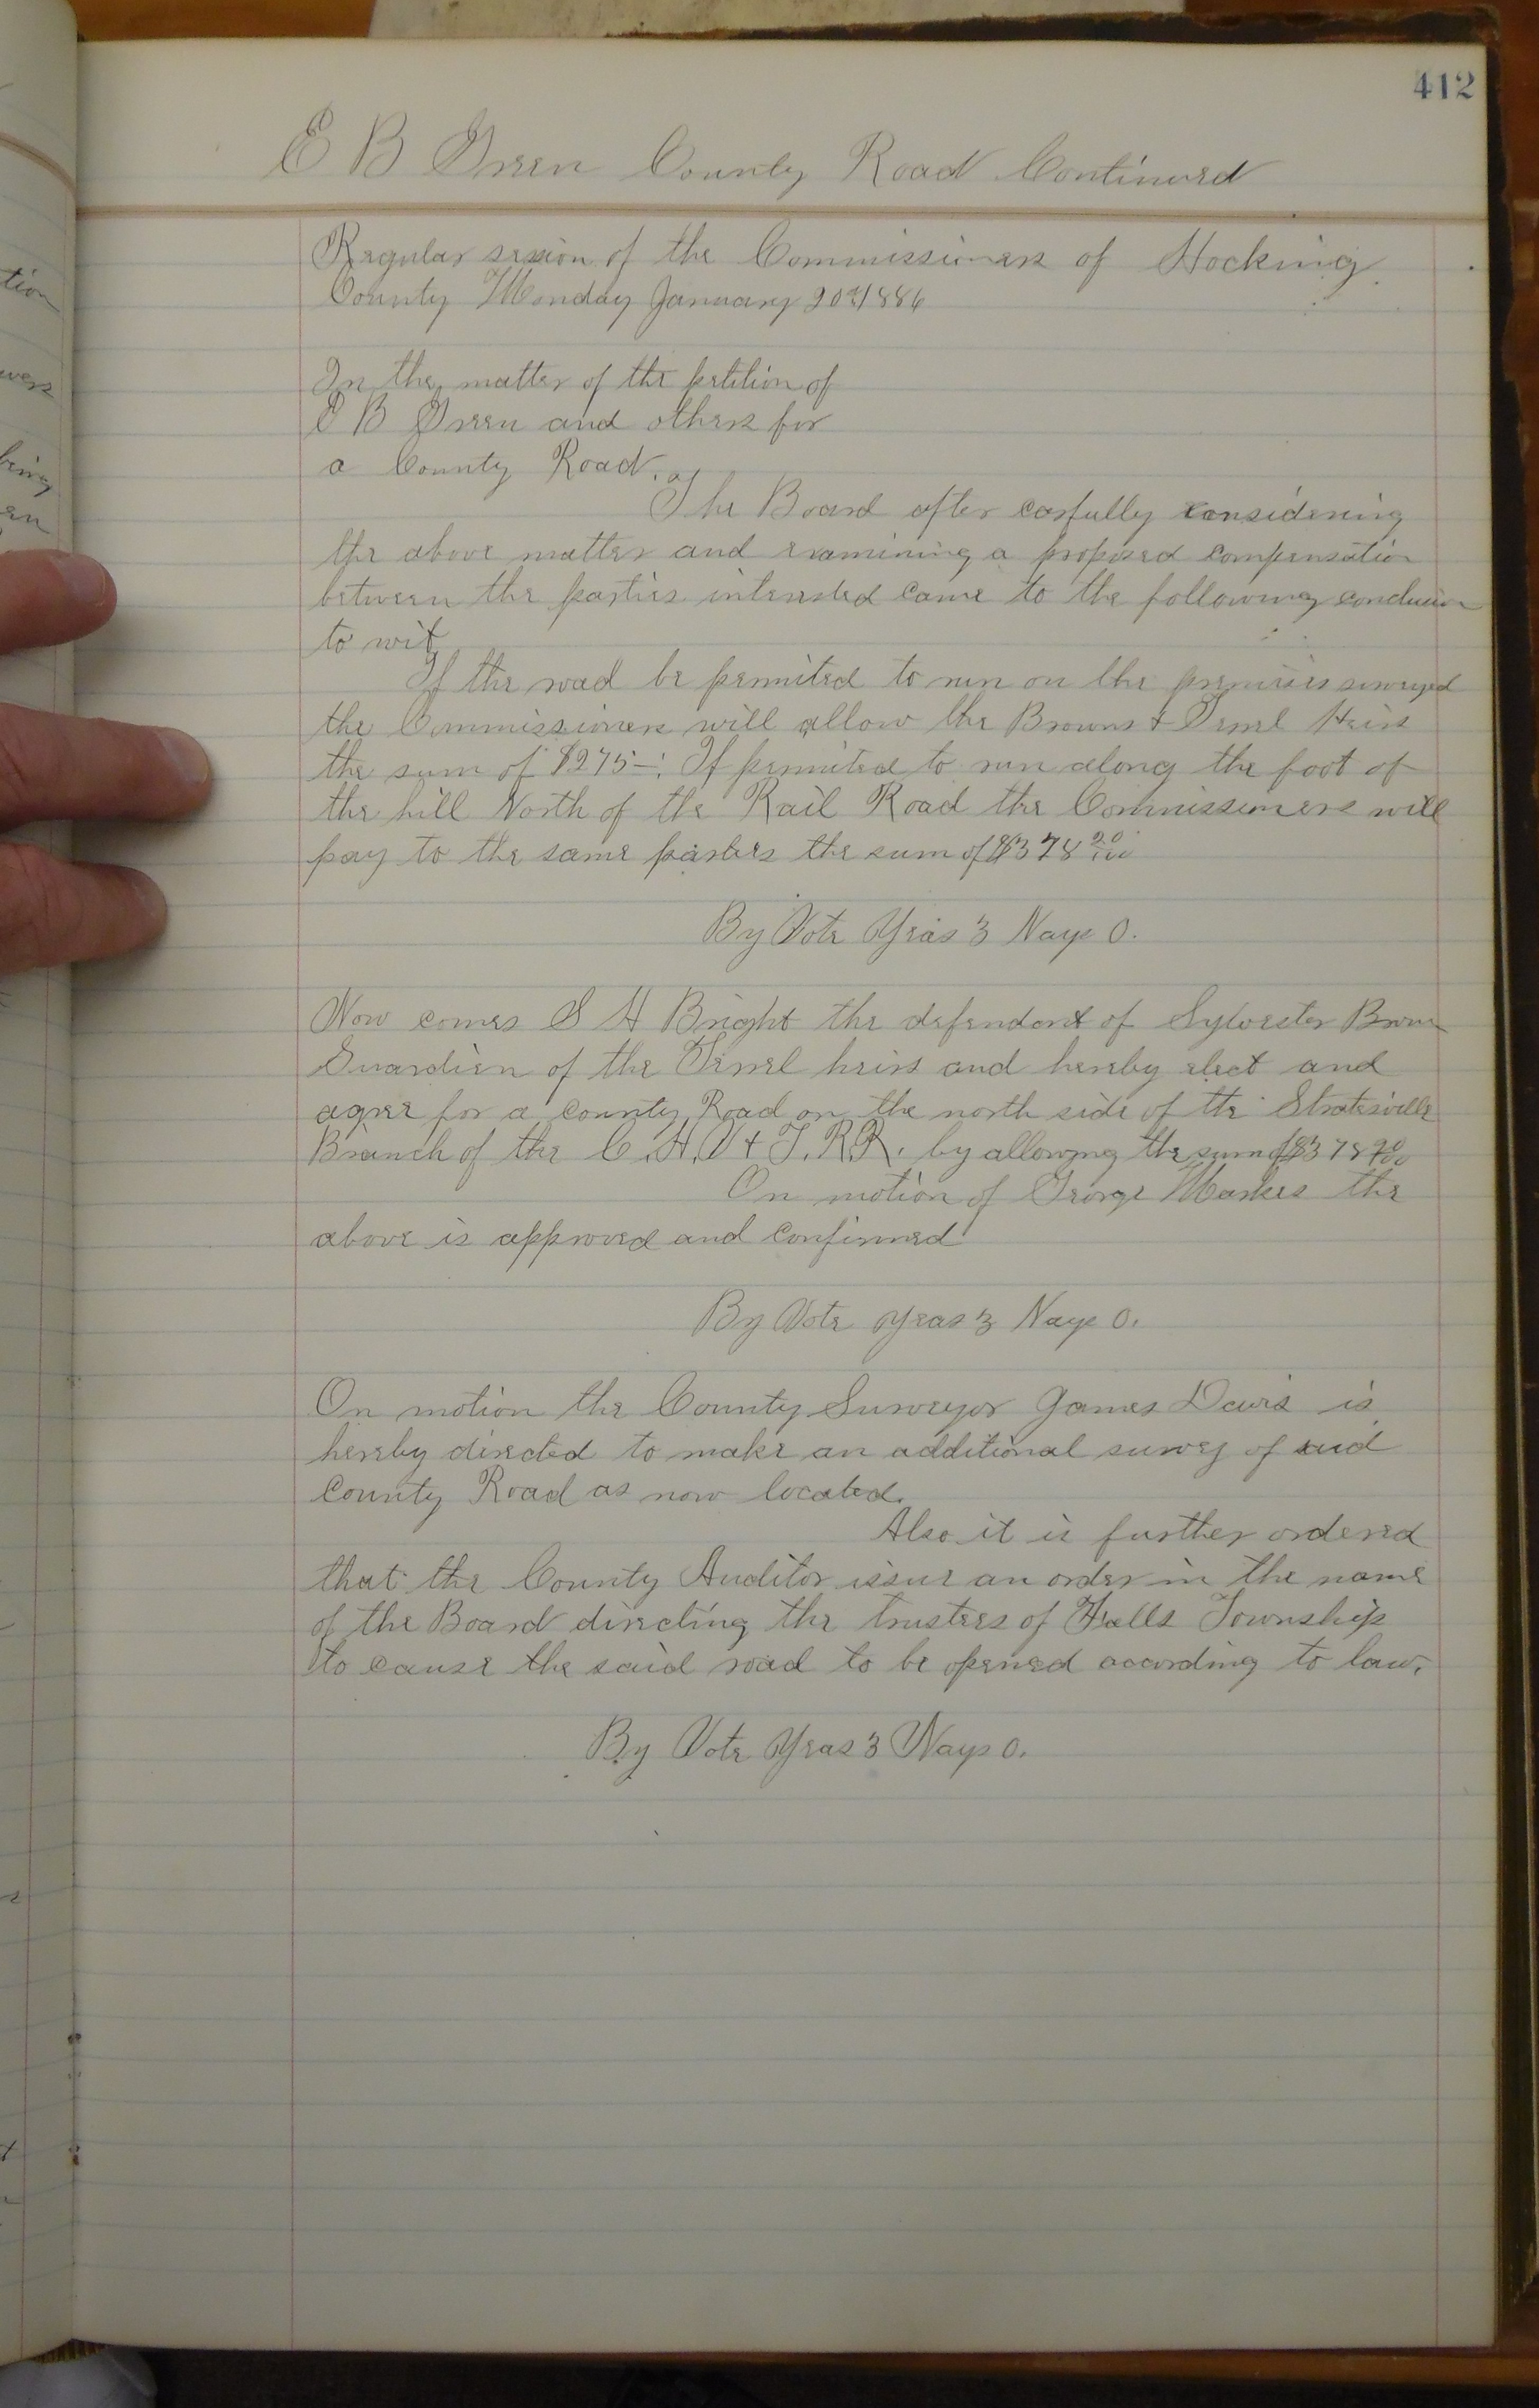 412
E B Green County Road Continued
Regular session of the Commissioners of Hocking
County Monday January 20th 1886
In the matter of the petition of
E B Green and others for
a County Road.
The Board after carfully considering
the above matter and examining a proposed compensation
between the parties interested came to the following conclusion
to wit
If the road be permited to run on the premises surveyed
the Commissioners will allow the Browns & Terrel Heirs
the sum of $275—. If permited to run along the foot of
the hill North of the Rail Road the Commissioners will
pay to the same parties the sum of $378 20/100
By Vote Yeas 3 Nays 0.
Now comes S H Bright the defendant of Sylvester Brown
Guardien of the Terrel heirs and hereby elect and
agree for a County Road on the north side of the Straitsville
Branch of the C. H. V & T. R.R. by allowing the sum of $378 20/100
On motion of George Markes the
above is approved and confirmed
By Vote yeas 3 Nays 0.
On motion the County Surveyor James Davis is
hereby directed to make an additional survey of said
County Road as now located.
Also it is further ordered
that the County Auditor issue an order in the name
of the Board directing the trustees of Falls Township
to cause the said road to be opened according to law.
By Vote Yeas 3 Nays 0.